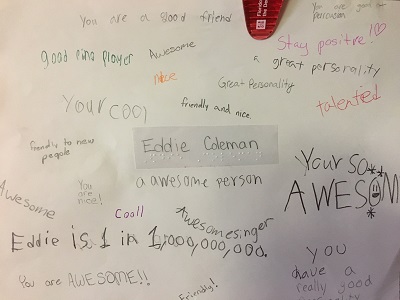 You are a good friend
You are good at
percussion
good ping player
Awesome
Stay positive!
nice
a great personality
Great Personality
Your cool
friendly and nice
talented
frendly to new
people
Eddie Coleman
Your so
AWESOM
You are
nice!
a awesome person
Awesome
Coall
Awesomesinger
Eddie is 1 in 1,000,000,000.
You are AWESOME!!
Friendly!
you
have a
really good